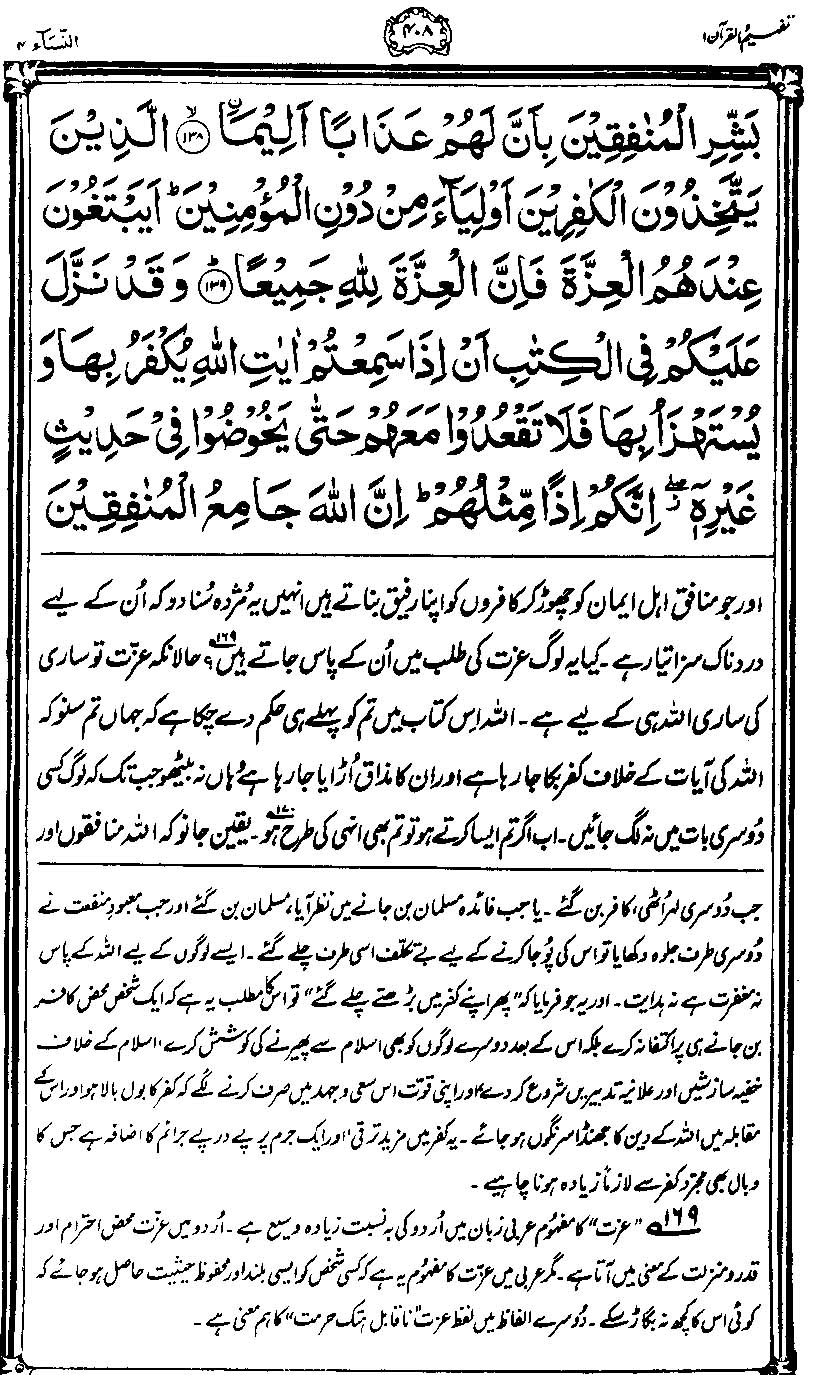 تفہیم القرآن ۱
۴۰۸
النسآء ۴
بَشِّرِ الْمُنٰفِقِيْنَ بِاَنَّ لَهُمْ عَذَابًا اَلِيْمَاۙ ﴿۱۳۸﴾ الَّذِيْنَ
يَتَّخِذُوْنَ الْكٰفِرِيْنَ اَوْلِيَآءَ مِنْ دُوْنِ الْمُؤْمِنِيْنَ ؕ اَيَبْتَغُوْنَ
عِنْدَهُمُ الْعِزَّةَ فَاِنَّ الْعِزَّةَ لِلّٰهِ جَمِيْعًا ؕ ﴿۱۳۹﴾ وَقَدْ نَزَّلَ
عَلَيْكُمْ فِى الْكِتٰبِ اَنْ اِذَا سَمِعْتُمْ اٰيٰتِ اللّٰهِ يُكْفَرُ بِهَا وَ
يُسْتَهْزَاُ بِهَا فَلَا تَقْعُدُوْا مَعَهُمْ حَتّٰى يَخُوْضُوْا فِىْ حَدِيْثٍ
غَيْرِهٖۤ ۖ اِنَّكُمْ اِذًا مِّثْلُهُمْ ؕ اِنَّ اللّٰهَ جَامِعُ الْمُنٰفِقِيْنَ
اور جو منافق اہل ایمان کو چھوڑ کر کافروں کو اپنا رفیق بناتے ہیں انہیں یہ مُژدہ سُنا دو کہ اُن کے لیے
دردناک سزا تیار ہے۔ کیا یہ لوگ عزت کی طلب میں اُن کے پاس جاتے ہیں ۱۶۹؟ حالانکہ عزّت تو ساری
کی ساری اللہ ہی کے لیے ہے۔ اللہ اِس کتاب میں تم کو پہلے ہی حکم دے چکا ہے کہ جہاں تم سنو کہ
اللہ کی آیات کے خلاف کفر بکا جا رہا ہے اور ان کا مذاق اُڑایا جا رہا ہے وہاں نہ بیٹھو جب تک کہ لوگ کسی
دُوسری بات میں نہ لگ جائیں۔ اب اگر تم ایسا کرتے ہو تو تم بھی انہی کی طرح ہو ۱۷۰۔ یقین جانو کہ اللہ منافقوں اور
جب دُوسری لہر اُٹھی، کافر بن گئے۔ یا جب فائدہ مسلمان بن جانے میں نظر آیا، مسلمان بن گئے اور جب معبودِ منفعت نے
دُوسری طرف جلوہ دکھایا تو اس کی پُوجا کرنے کے لیے بے تکلّف اسی طرف چلے گئے۔ ایسے لوگوں کے لیے اللہ کے پاس
نہ مغفرت ہے نہ ہدایت۔ اور یہ جو فرمایا کہ ”پھر اپنے کفر میں بڑھتے چلے گئے“ تو اس کا مطلب یہ ہے کہ ایک شخص محض کافر
بن جانے ہی پر اکتفا نہ کرے بلکہ اس کے بعد دوسرے لوگوں کو بھی اسلام سے پھیرنے کی کوشش کرے، اسلام کے خلاف
خفیہ سازشیں اور علانیہ تدبیریں شروع کر دے، اور اپنی قوت اس سعی و جہد میں صرف کرنے لگے کہ کفر کا بول بالا ہو اور اس کے
مقابلہ میں اللہ کے دین کا جھنڈا سرنگوں ہو جائے۔ یہ کفر میں مزید ترقی، اور ایک جرم پر پے در پے جرائم کا اضافہ ہے جس کا
وبال بھی مجرّد کفر سے لازماً زیادہ ہونا چاہیے۔
۱۶۹ ”عزت“ کا مفہُوم عربی زبان میں اُردو کی بہ نسبت زیادہ وسیع ہے۔ اُردو میں عزّت محض احترام اور
قدر و منزلت کے معنی میں آتا ہے۔ مگر عربی میں عزّت کا مفہُوم یہ ہے کہ کسی شخص کو ایسی بلند اور محفوظ حیثیت حاصل ہو جائے کہ
کوئی اس کا کچھ نہ بگاڑ سکے۔ دُوسرے الفاظ میں لفظ عزت ”ناقابل ہتک حرمت“ کا ہم معنی ہے۔